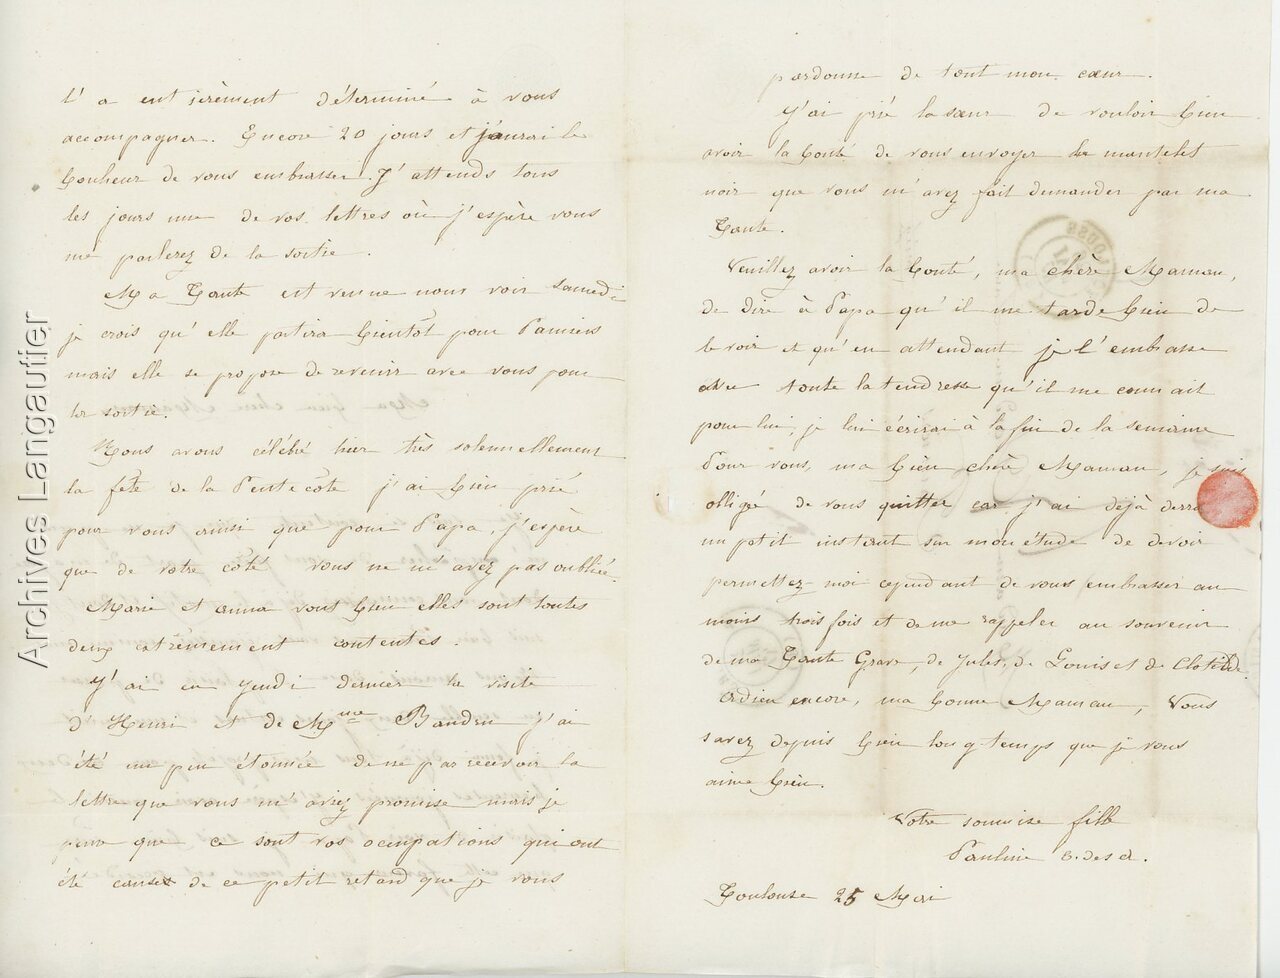 l'a entièrement déterminé à vous
accompagner. Encore 20 jours et j'aurai le
bonheur de vous embrasser. J'attends tous
les jours une de vos lettres où j'espère vous
me parlerez de la sortie.
Ma Tante est venue nous voir Samedi
je crois qu'elle partira bientôt pour Pamiers
mais elle se propose de revenir avec vous pour
la sortie.
Nous avons célébré hier très solennellement
la fête de la Pentecôte j'ai bien prié
pour vous ainsi que pour Papa, j'espère
que de votre côté vous ne m'avez pas oubliée.
Marie et Anna vous bien elles sont toutes
deux extrêmement contentes.
J'ai eu Jeudi dernier la visite
d'Henri et de Mme Baudru j'ai
été un peu étonnée de ne pas recevoir la
lettre que vous m'aviez promise mais je
pense que ce sont vos occupations qui ont
été cause de ce petit retard que je vous
pardonne de tout mon cœur.
J'ai prié la sœur de vouloir bien
avoir la bonté de vous envoyer le mantelet
noir que vous m'avez fait demander par ma
Tante.
Veuillez avoir la bonté, ma chère Maman,
de dire à Papa qu'il me tarde bien de
le voir et qu'en attendant je l'embrasse
avec toute la tendresse qu'il me connait
pour lui, je lui écrirai à la fin de la semaine
Pour vous, ma bien chère Maman, je suis
obligé de vous quitter car j'ai déjà
un petit instant sur mon étude de devoir
permettez moi cependant de vous embrasser au
moins trois fois et de me rappeler au souvenir
de ma Tante Grave, de Jules, de Louis et de Clotilde.
Adieu encore, ma bonne Maman, Vous
savez depuis bien longtemps que je vous
aime bien.
Votre soumise fille
Pauline E. des A.
Toulouse 25 Mai
Archives Langautier